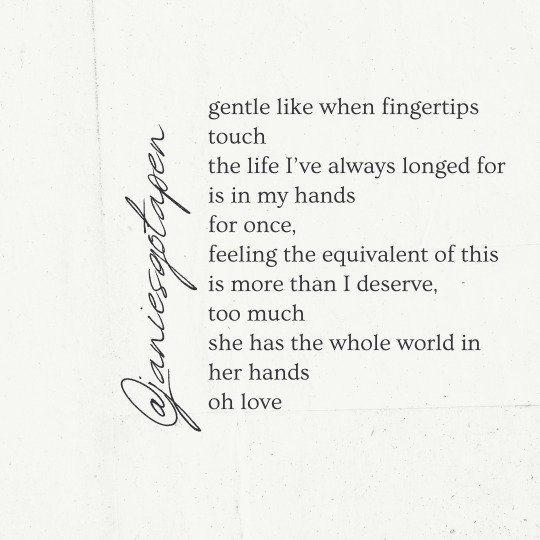 @janiesgotapen
gentle like when fingertips
touch
the life I’ve always longed for
is in my hands
for once,
feeling the equivalent of this
is more than I deserve,
too much
she has the whole world in
her hands
oh love